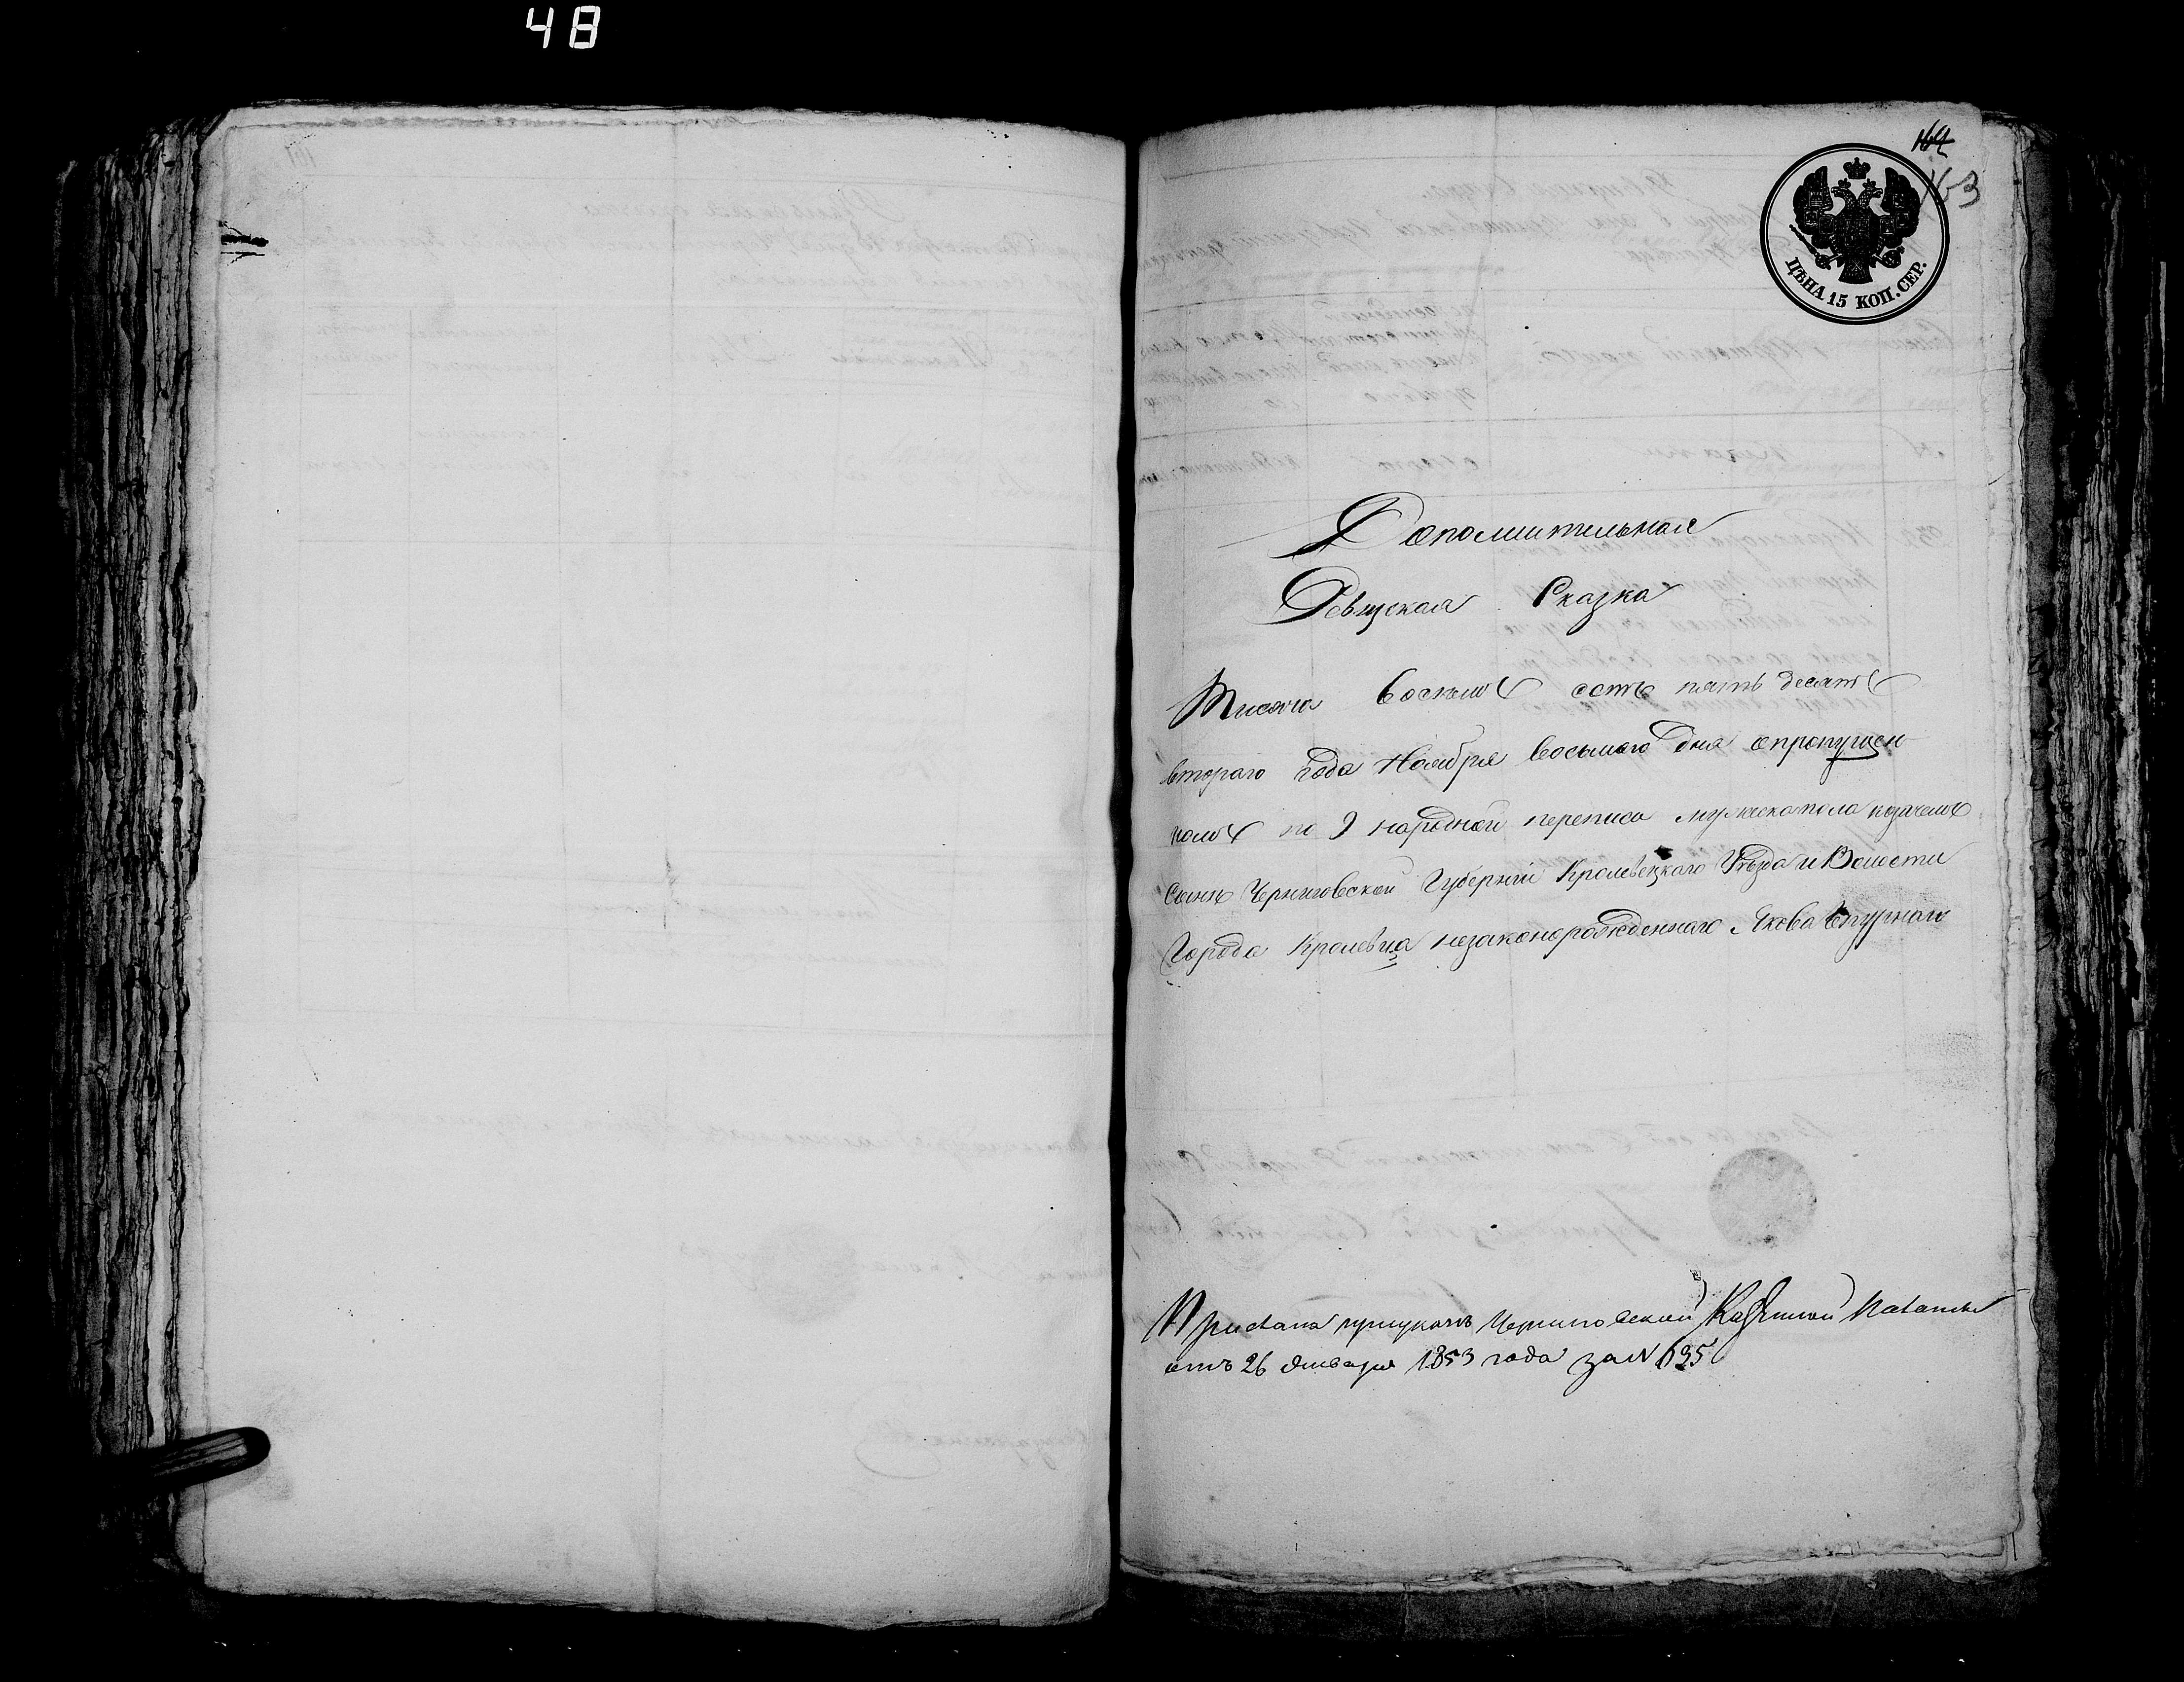 48
164
163
ЦѢНА 15 КОП. СЕР.
Дополнительная
Ревизская Сказка
Тисяча восемь сотъ пять десятъ
втораго года Ноября восьмого дня о пропущен
номъ по 9 народной переписи мужеска пола казачемъ
сынѣ Черниговской Губерніи Кролевецкаго Уѣзда и Волости
Города Кролевца незаконорожденнаго Якова
при Черниговской Казенной Палаты
отъ 26 Января 1853 года за N 635